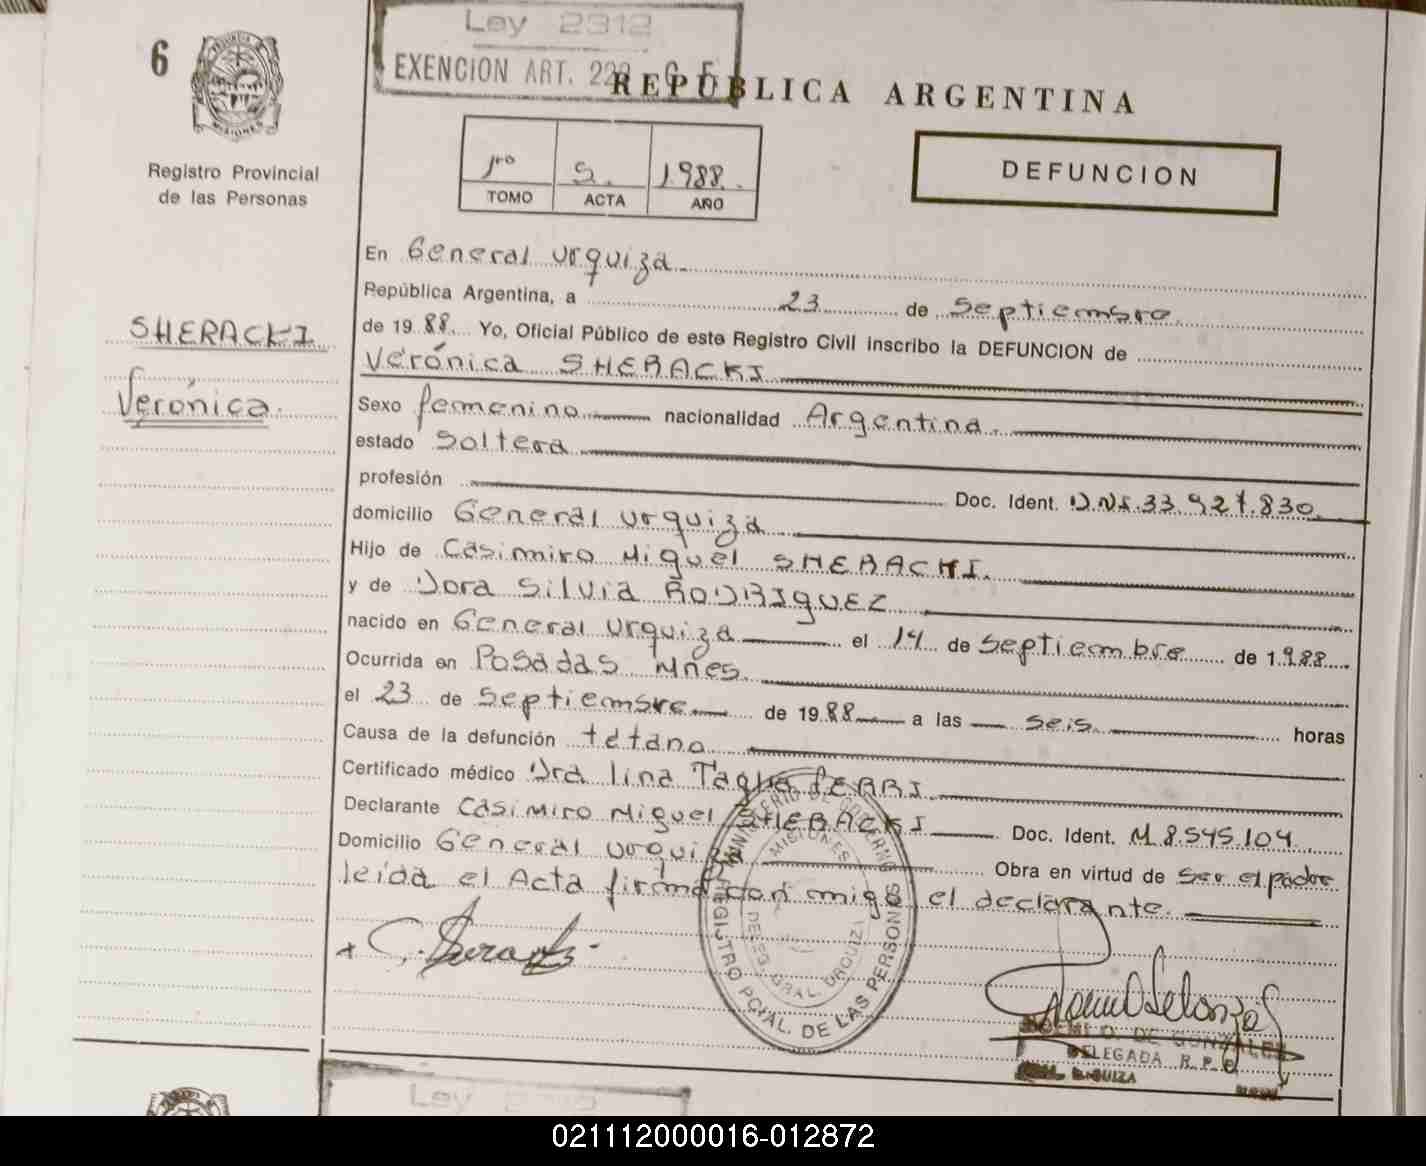 6
Ley 2312
EXENCION ART. 228 C. F.
REPUBLICA ARGENTINA
PROVINCIA DE
MISIONES
Registro Provincial
de las Personas
1ro 5. 1.988.
TOMO ACTA AÑO
DEFUNCION
SHERACKI
Verónica.
En General urquiza
República Argentina, a 23 de Septiembre
de 1988. Yo, Oficial Público de este Registro Civil inscribo la DEFUNCION de
Verónica SHERACKI
Sexo femenino nacionalidad Argentina.
estado Soltera
profesión Doc. Ident. D.NI.33.927.830
domicilio General urquiza
Hijo de Casimiro Miguel SHERACKI.
y de Dora Silvia RODRIGUEZ
nacido en General urquiza el 14 de Septiembre de 1.988
Ocurrida en Posadas Mnes.
el 23 de Septiembre de 1988 a las seis horas
Causa de la defunción tétano
Certificado médico Dra lina Tagua FERRI
Declarante Casimiro Miguel SHERACKI Doc. Ident. M 8.545.104
Domicilio General urquiza Obra en virtud de Ser el padre
leída el Acta firma con migo el declarante.
MINISTERIO DE GOBIERNO
MISIONES
DELEG. GRAL. URQUIZA
REGISTRO PCIAL. DE LAS PERSONAS
NOEMI D. DE GONZALEZ
DELEGADA R. P. P.
URQUIZA
Ley
021112000016-012872